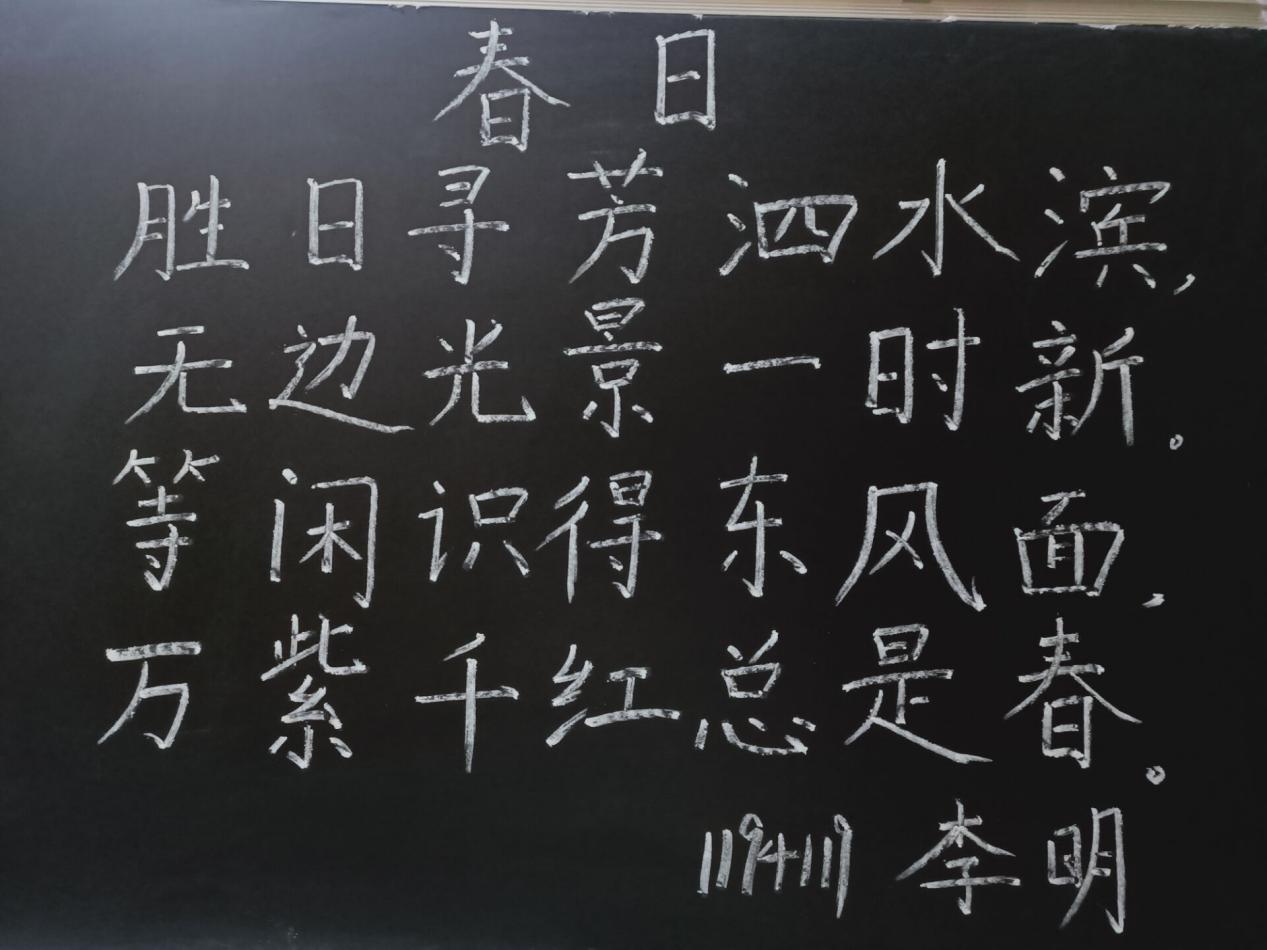 春日
胜日寻芳泗水滨,
无边光景一时新。
等闲识得东风面,
万紫千红总是春。
1194119 李明